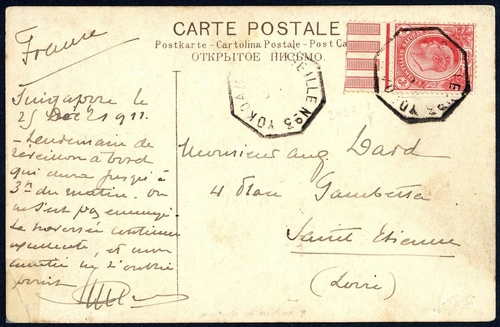 France
CARTE POSTALE
Postkarte - Cartolina Postale - Post Ca
ОТКРЫТОЕ ПИСЬМО.
EILLE Nº3 YOKOHA
Singapore le
25 Déc 1911.
Lendemain de
réveillon à bord
qui dura jusqu'à
3h du matin. On
ne s'est pas ennuyé.
La traversée continue
et mon
ne l'oublie
point
Monsieur Aug. Dard
4 Place Gambetta
Saint Etienne
(Loire)